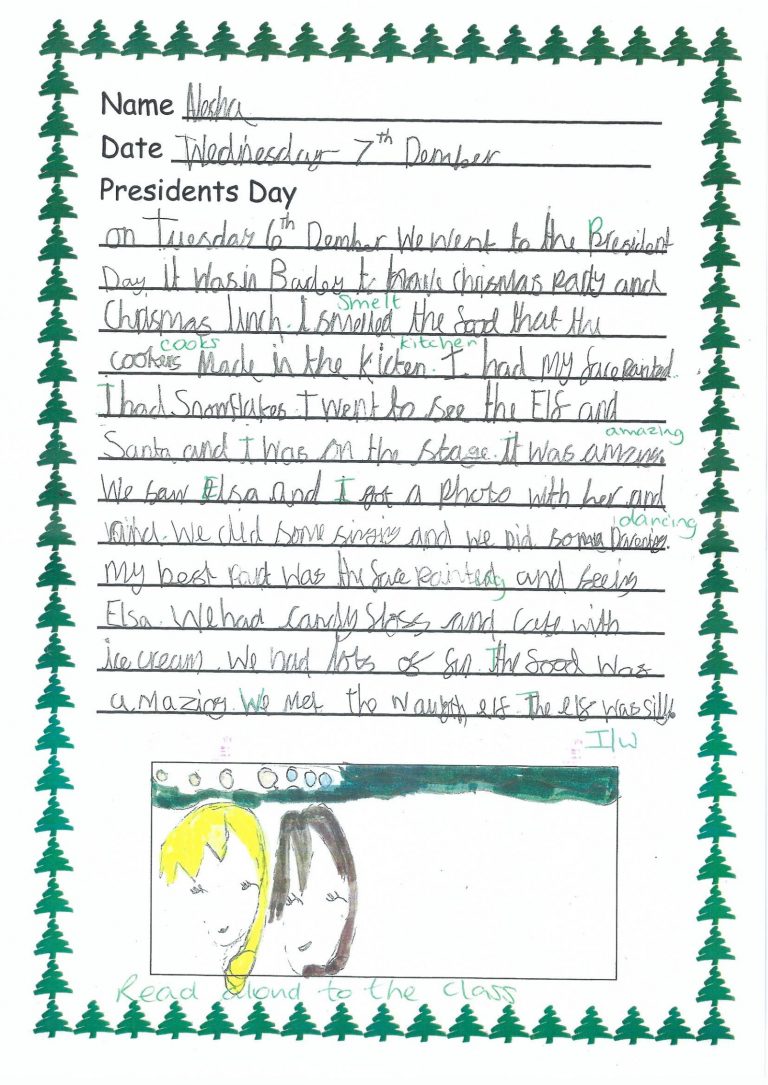 Name Alesha
Date Wednesday 7th Dember
Presidents Day
on Tuesday 6th Dember We Went to the President
Day it Was in Barley to have Chrismas party and
Smelt
Chrismas linch. I smelled the food that the
cooks kitchen
cookers Made in the kicten. I had My face painted.
I had Snowflakes. I went to see the Elf and
amazing
Santa and I was on the stage. It was amzing.
We saw Elsa and I got a photo with her and
dancing
We did some singing and we did some
My best part was the face painting and seeing
Elsa. We had candy floss and Cake with
ice cream. We had lots of fun. The food was
amazing. We met the Naughty elf. The elf was silly.
I/w
Read aloud to the class